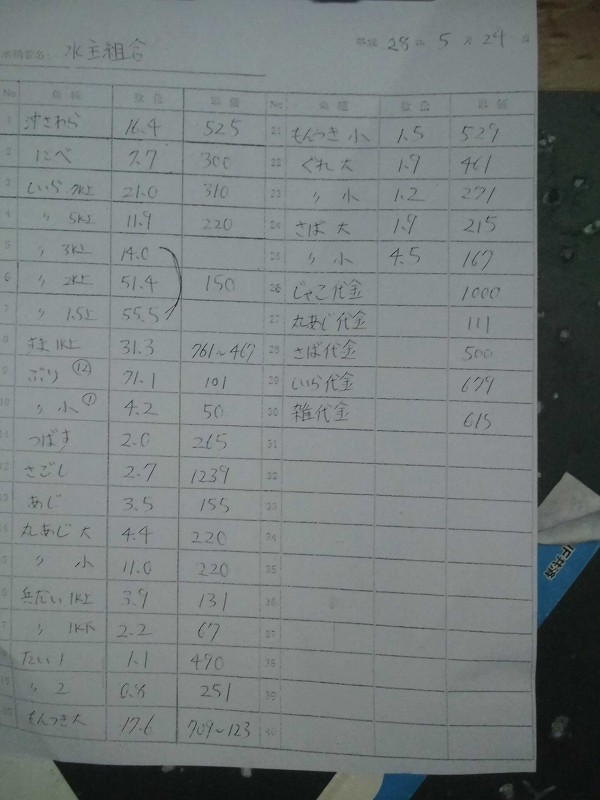 水主組合
平成 28年 5月 24日
No 魚種 数量 単価
1 沖さわら 16.4 525
2 にべ 7.7 300
3 しいら 7K上 21.0 310
4 〃 5K上 11.9 220
5 〃 3K上 14.0
6 〃 2K上 51.4 150
7 〃 1.5上 55.5
8 1K上 31.3 761~467
9 ぶり ⑫ 71.1 101
10 〃 小 ① 4.2 50
11 つばす 2.0 265
12 さごし 2.7 1239
13 あじ 3.5 155
14 丸あじ 大 4.4 220
15 〃 小 11.0 220
16 兵だい 1K上 3.9 131
17 〃 1K下 2.2 67
18 たい 1 1.1 470
19 〃 2 0.8 251
20 もんつき大 17.6 709~123
No 魚種 数量 単価
21 もんつき 小 1.5 527
22 ぐれ 大 1.9 461
23 〃 小 1.2 271
24 さば 大 1.9 215
25 〃 小 4.5 167
26 じゃこ代金 1000
27 丸あじ代金 111
28 さば代金 500
29 しいら代金 679
30 雑代金 615
31
32
33
34
35
36
37
38
39
40
JF共済